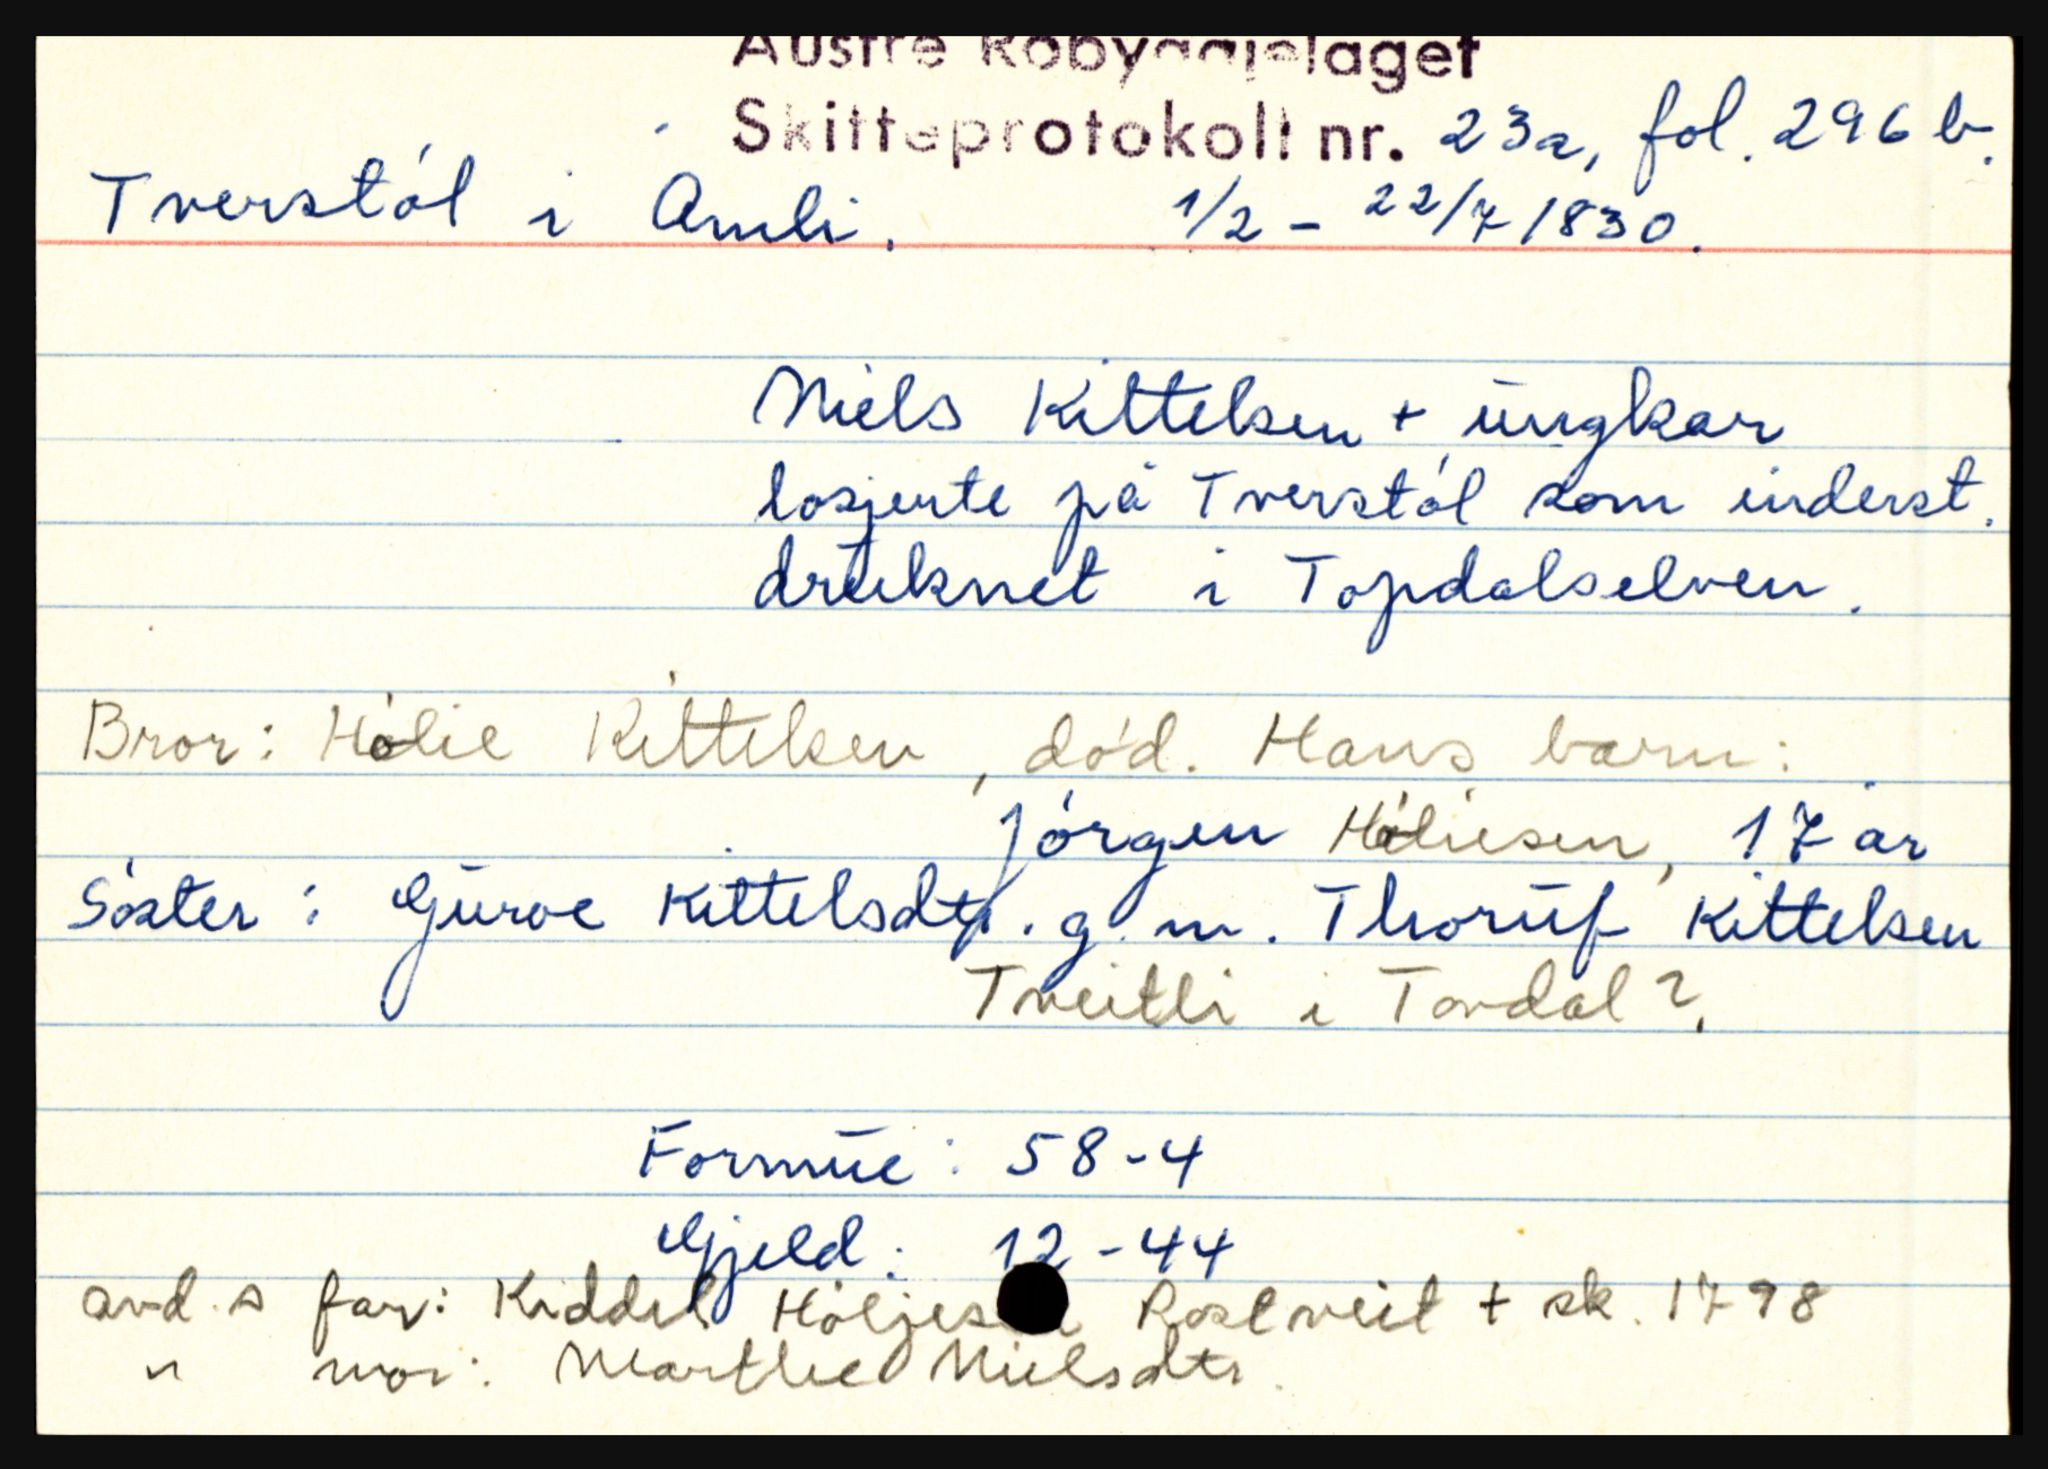 Austre Robyggjelaget
Skifteprotokoll nr. 23a, fol. 296 b.
Tverstøl i Amli. 1/2 - 22/7 1830.
Niels Kittelsen + ungkar
losjerte på Tverstøl som inderst.
druknet i Topdalselven.
Bror: Hølie Kittelsen, død. Hans barn:
Jørgen Høliesen, 17 år
Søster: Guroe Kittelsdtr. g. m. Thoruf Kittelsen
Tveitli i Tovdal?
Formue: 58-4
Gjeld: 12-44
avd.s far: Kiddel Høljesen Rostveit + sk. 1798
" mor: Marthe Nielsdtr.